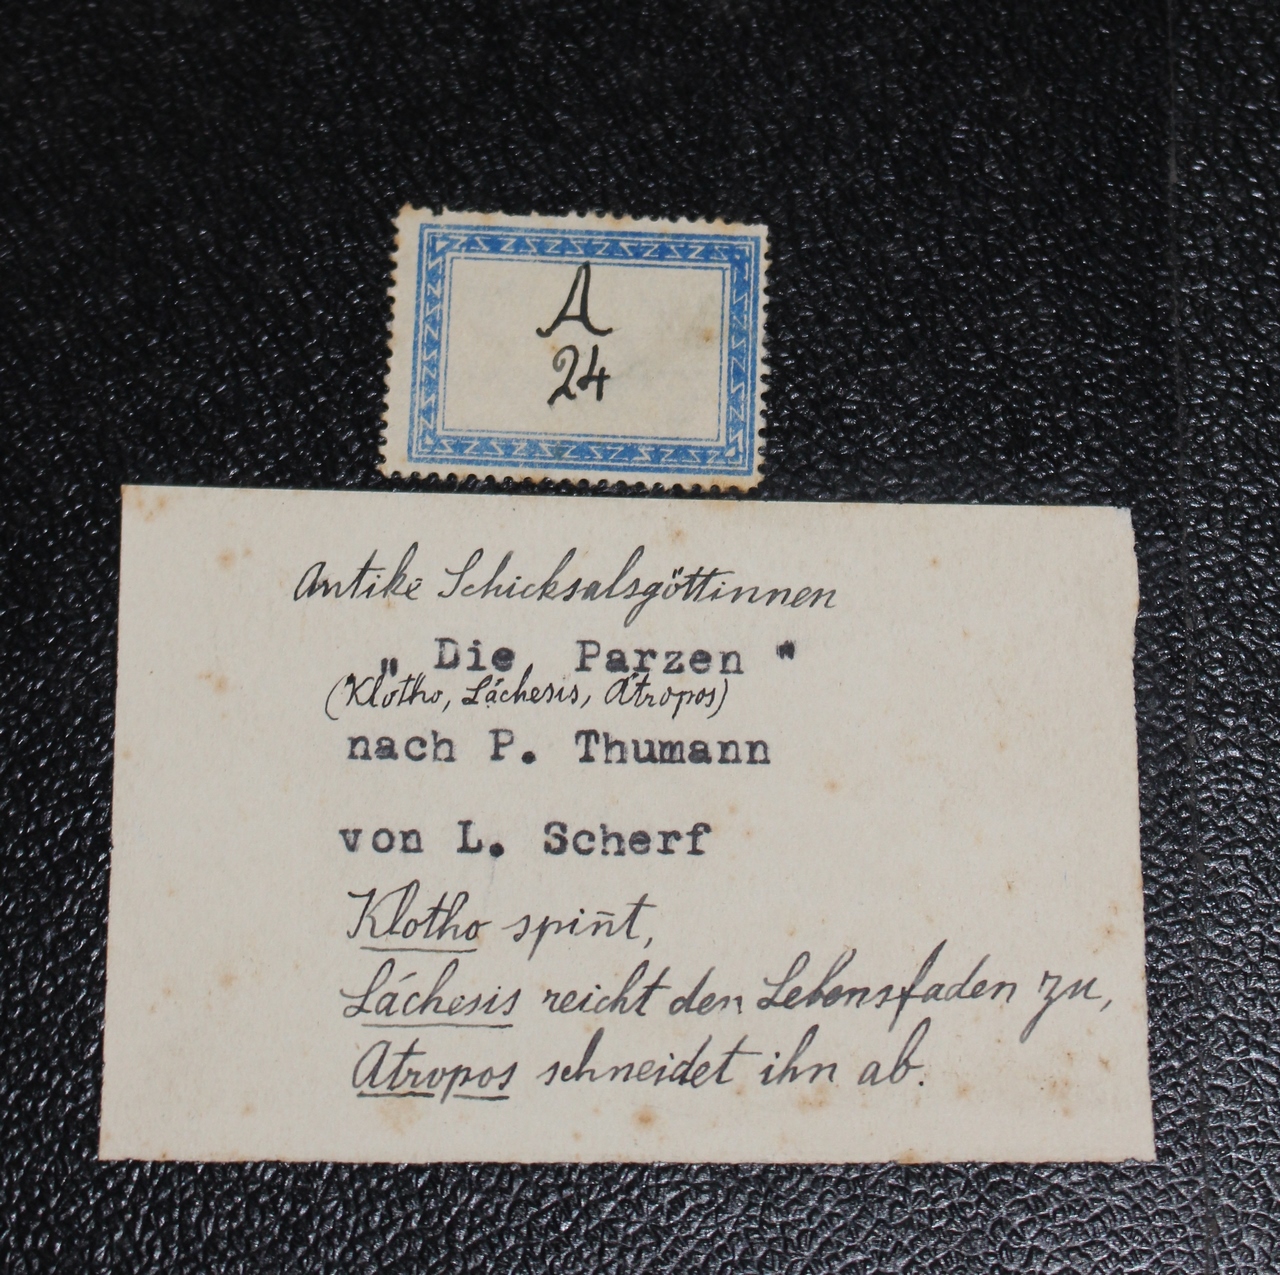 A
24
Antike Schicksalsgöttinnen
„ Die Parzen "
(Klotho, Láchesis, Átropos)
nach P. Thumann
von L. Scherf
Klotho spin̄t,
Láchesis reicht den Lebensfaden zu,
Atropos schneidet ihn ab.